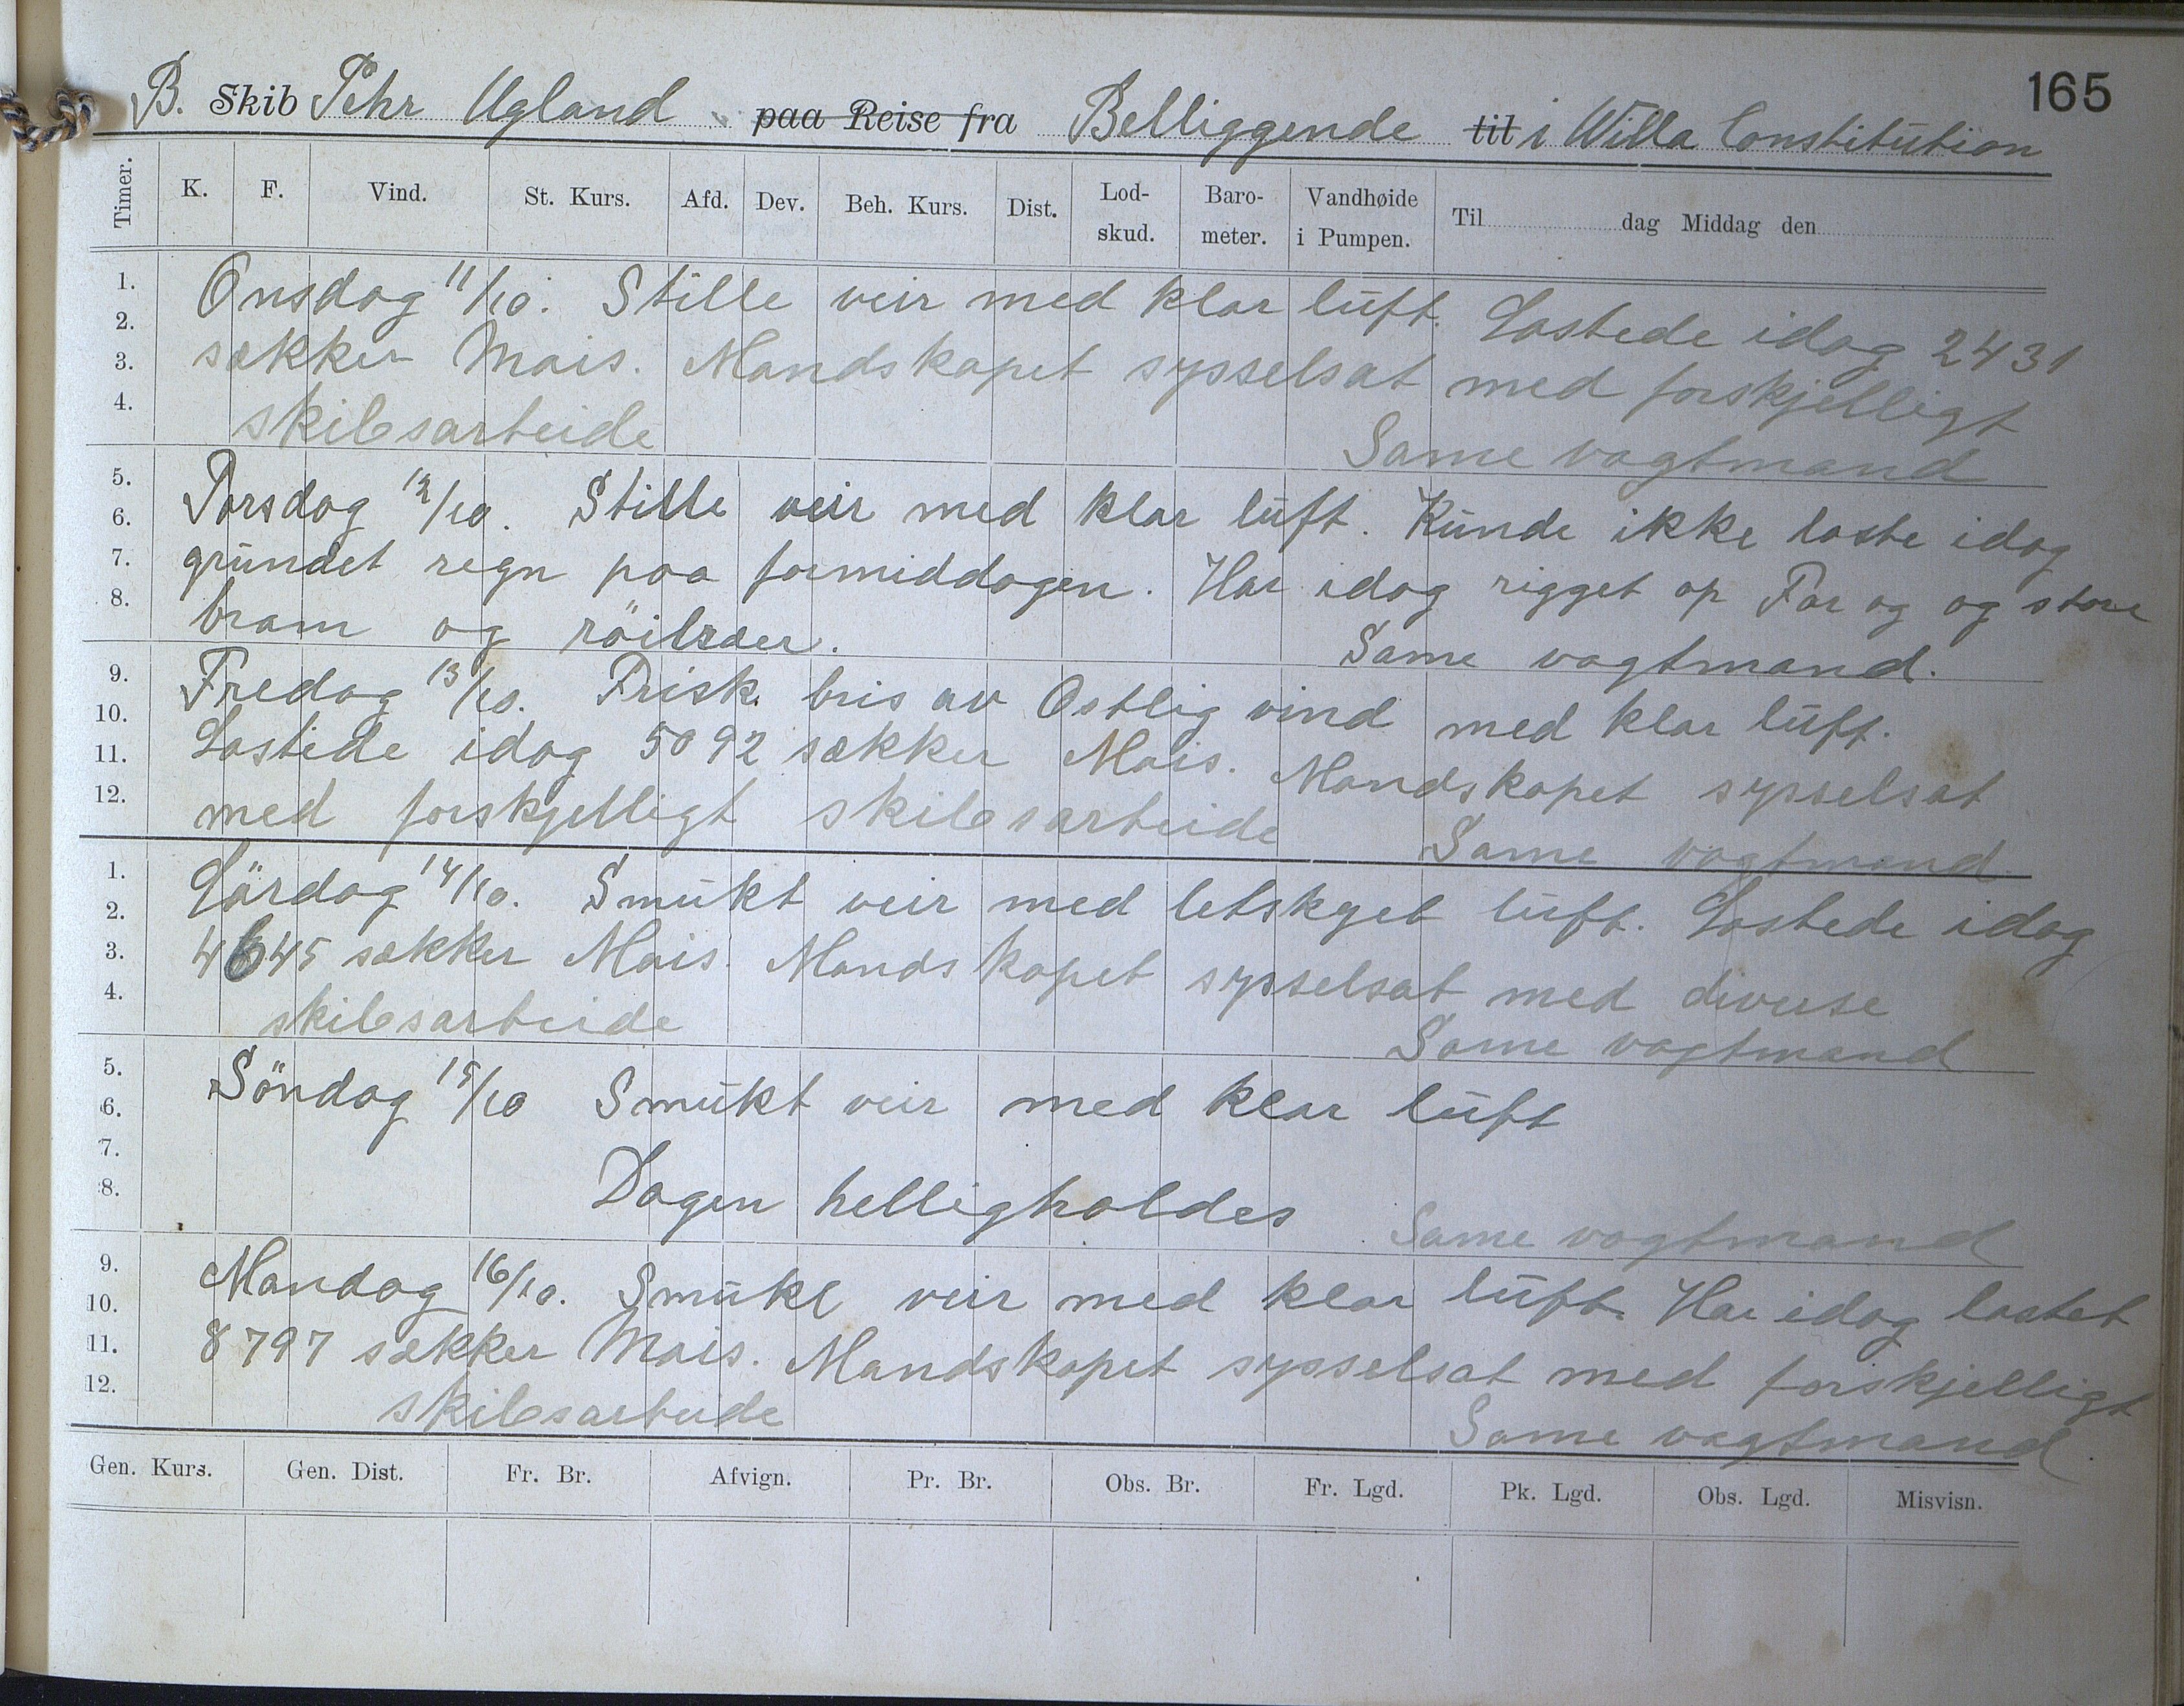 165
B. Skib Pehr Ugland paa Reise fra Belliggende til i Willa Constitution
Timer. K. F. Vind. St. Kurs. Afd. Dev. Beh. Kurs. Dist. Lod-skud. Baro-meter. Vandhøide i Pumpen. Til dag Middag den
1.
2.
3.
4.
Onsdag 11/10. Stille veir med klar luft. Lastede idag 2431
sækker Mais. Mandskapet sysselsat med forskjelligt
skibsarbeide Same vagtmand
5.
6.
7.
8.
Torsdag 12/10. Stille veir med klar luft. Kunde ikke laste idag
grundet regn paa formiddagen. Har idag rigget op For og og store
bram og röilræer. Same vagtmand.
9.
10.
11.
12.
Fredag 13/10. Frisk bris av Ostlig vind med klar luft.
Lastede idag 5092 sækker Mais. Mandskapet sysselsat
med forskjelligt skibsarbeide Same vagtmand.
1.
2.
3.
4.
Lördag 14/10. Smukt veir med letskyet luft. Lastede idag
4645 sækker Mais. Mandskapet sysselsat med diverse
skibsarbeide Same vagtmand
5.
6.
7.
8.
Söndag 15/10 Smukt veir med klar luft
Dagen helligholdes Same vagtmand
9.
10.
11.
12.
Mandag 16/10. Smukt veir med klar luft. Har idag lastet
8797 sækker Mais. Mandskapet sysselsat med forskjelligt
skibsarbeide Same vagtmand.
Gen. Kurs. Gen. Dist. Fr. Br. Afvign. Pr. Br. Obs. Br. Fr. Lgd. Pk. Lgd. Obs. Lgd. Misvisn.